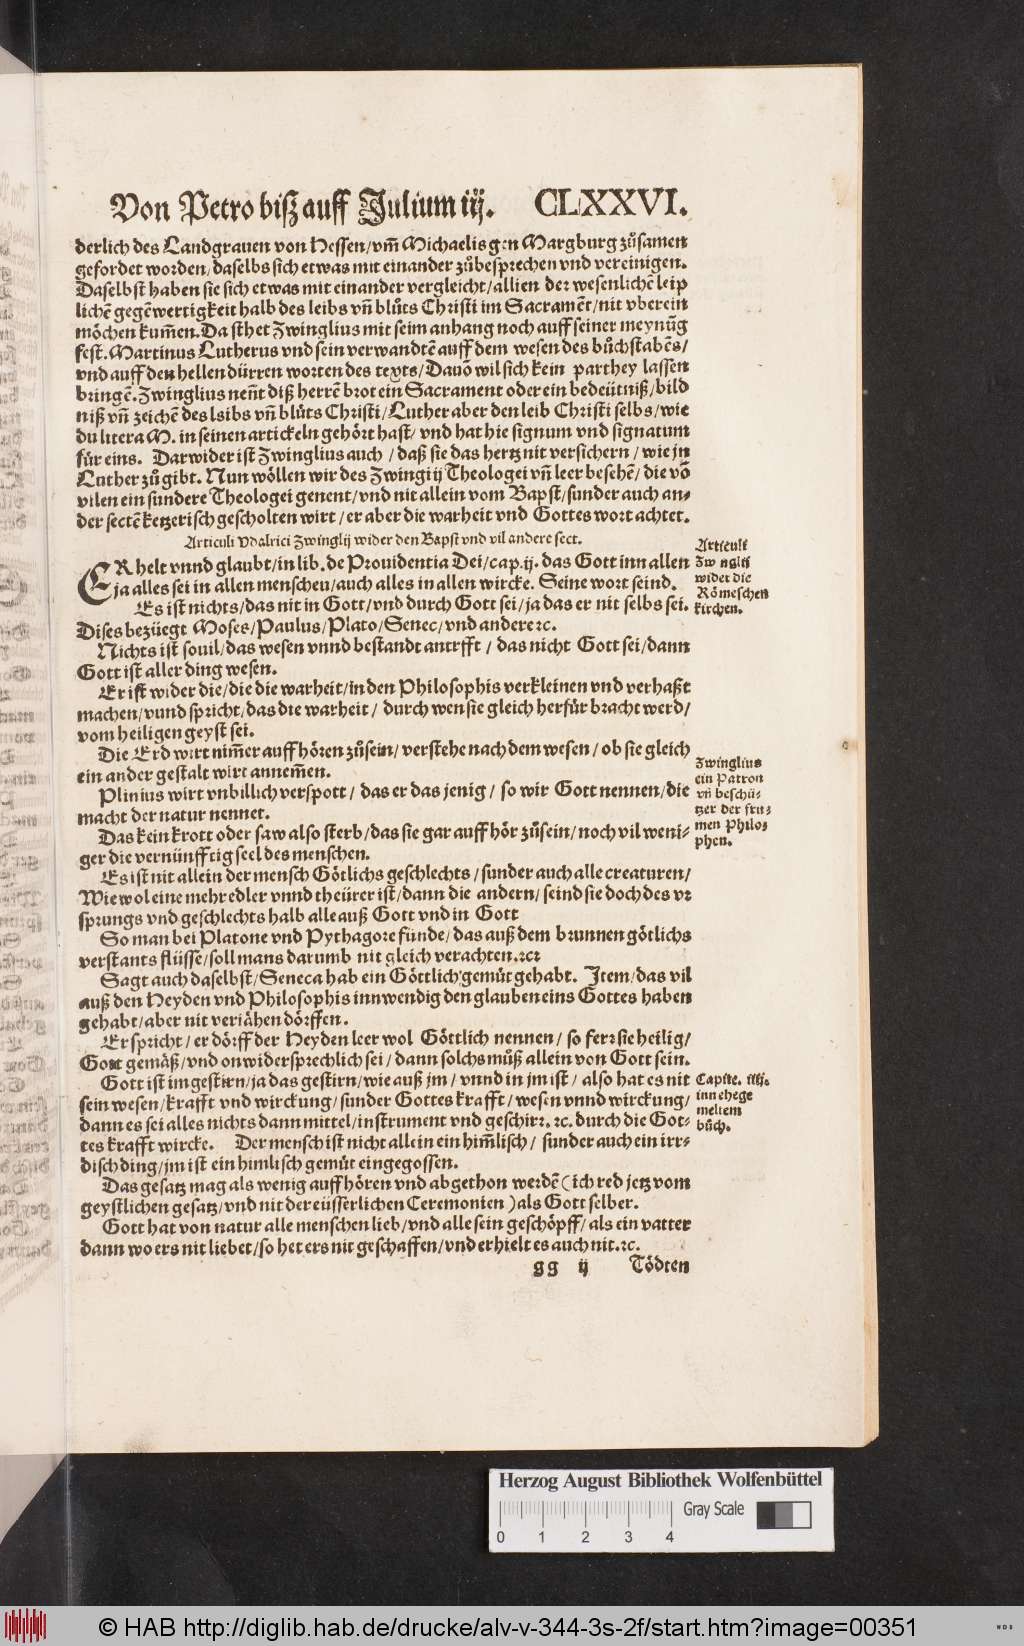 Von Petro biß auff Julium iij. CLXXVI.
derlich des Landgrauen von Hessen/vm̃ Michaelis gen Margburg zůsamen
gefordet worden/daselbs sich etwas mit einander zůbesprechen vnd vereinigen.
Daselbst haben sie sich etwas mit einander vergleicht/allien der wesenlichē leip
lichē gegēwertigkeit halb des leibs vñ blůts Christi im Sacramēt/nit vberein
möchen kum̃en. Da sthet Zwinglius mit seim anhang noch auff seiner meynūg
fest. Martinus Lutherus vnd sein verwandtē auff dem wesen des bůchstabēs/
vnd auff den hellen dürren worten des texts/Dauō wil sich kein parthey lassen
bringē. Zwinglius neñt diß herrē brot ein Sacrament oder ein bedeütniß/bild
niß vñ zeichē des lsibs vñ blůts Christi/Luther aber den leib Christi selbs/wie
du litera M. in seinen artickeln gehört hast/vnd hat hie signum vnd signatum
für eins. Darwider ist Zwinglius auch/daß sie das hertz nit versichern/wie jn
Luther zů gibt. Nun wöllen wir des Zwingij Theologei vñ leer besehē/die vō
vilen ein sundere Theologei genent/vnd nit allein vom Bapst/sunder auch an-
der sectē ketzerisch gescholten wirt/er aber die warheit vnd Gottes wort achtet.
Articuli Vdalrici Zwinglij wider den Bapst vnd vil andere sect.
Articuli
Zwnglij
wider die
Römeschen
kirchen.
ER helt vnnd glaubt/in lib. de Prouidentia Dei/cap.ij. das Gott inn allen
ja alles sei in allen menschen/auch alles in allen wircke. Seine wort seind.
Es ist nichts/das nit in Gott/vnd durch Gott sei/ja das er nit selbs sei.
Dises bezüegt Moses/Paulus/Plato/Senec/vnd andere ꝛc.
Nichts ist souil/das wesen vnnd bestandt antrfft/das nicht Gott sei/dann
Gott ist aller ding wesen.
Er ist wider die/die die warheit/in den Philosophis verkleinen vnd verhaßt
machen/vund spricht/das die warheit/durch wen sie gleich herfür bracht werd/
vom heiligen geyst sei.
Die Erd wirt nim̃er auff hören zůsein/verstehe nach dem wesen/ob sie gleich
ein ander gestalt wirt annem̃en.
Zwinglius
ein Patron
vñ beschü-
tzer der frū-
men Philo-
phen.
Plinius wirt vnbillich verspott/das er das jenig/so wir Gott nennen/die
macht der natur nennet.
Das kein krott oder saw also sterb/das sie gar auff hör zůsein/noch vil weni-
ger die vernünfftig seel des menschen.
Es ist nit allein der mensch Götlichs geschlechts/sunder auch alle creaturen/
Wiewol eine mehr edler vnnd theürer ist/dann die andern/seind sie doch des vr
sprungs vnd geschlechts halb alle auß Gott vnd in Gott
So man bei Platone vnd Pythagore fünde/das auß dem brunnen götlichs
verstants flüsse/soll mans darumb nit gleich verachten.ꝛcꝛ
Sagt auch daselbst/Seneca hab ein Göttlich gemüt gehabt. Item/das vil
auß den Heyden vnd Philosophis innwendig den glauben eins Gottes haben
gehabt/aber nit veriähen dörffen.
Er spricht/er dörff der Heyden leer wol Göttlich nennen/so ferr sie heilig/
Gott gemäß/vnd onwidersprechlich sei/dann solchs můß allein von Gott sein.
Capite. iiij.
inn ehege
meltem
bůch.
Gott ist im gestirn/ja das gestirn/wie auß jm/vnnd in jm ist/also hat es nit
sein wesen/krafft vnd wirckung/sunder Gottes krafft/wesen vnnd wirckung/
dann es sei alles nichts dann mittel/instrument vnd geschirr. ꝛc. durch die Got-
tes krafft wircke. Der mensch ist nicht allein ein him̃lisch/sunder auch ein irr-
disch ding/jm ist ein himlisch gemüt eingegossen.
Das gesatz mag als wenig auff hören vnd abgethon werdē (ich red jetz vom
geystlichen gesatz/vnd nit der eüsserlichen Ceremonien) als Gott selber.
Gott hat von natur alle menschen lieb/vnd alle sein geschöpff/als ein vatter
dann wo ers nit liebet/so het ers nit geschaffen/vnd erhielt es auch nit.ꝛc.
gg ij Tödten
Herzog August Bibliothek Wolfenbüttel
Gray Scale
0 1 2 3 4
© HAB http://diglib.hab.de/drucke/alv-v-344-3s-2f/start.htm?image=00351